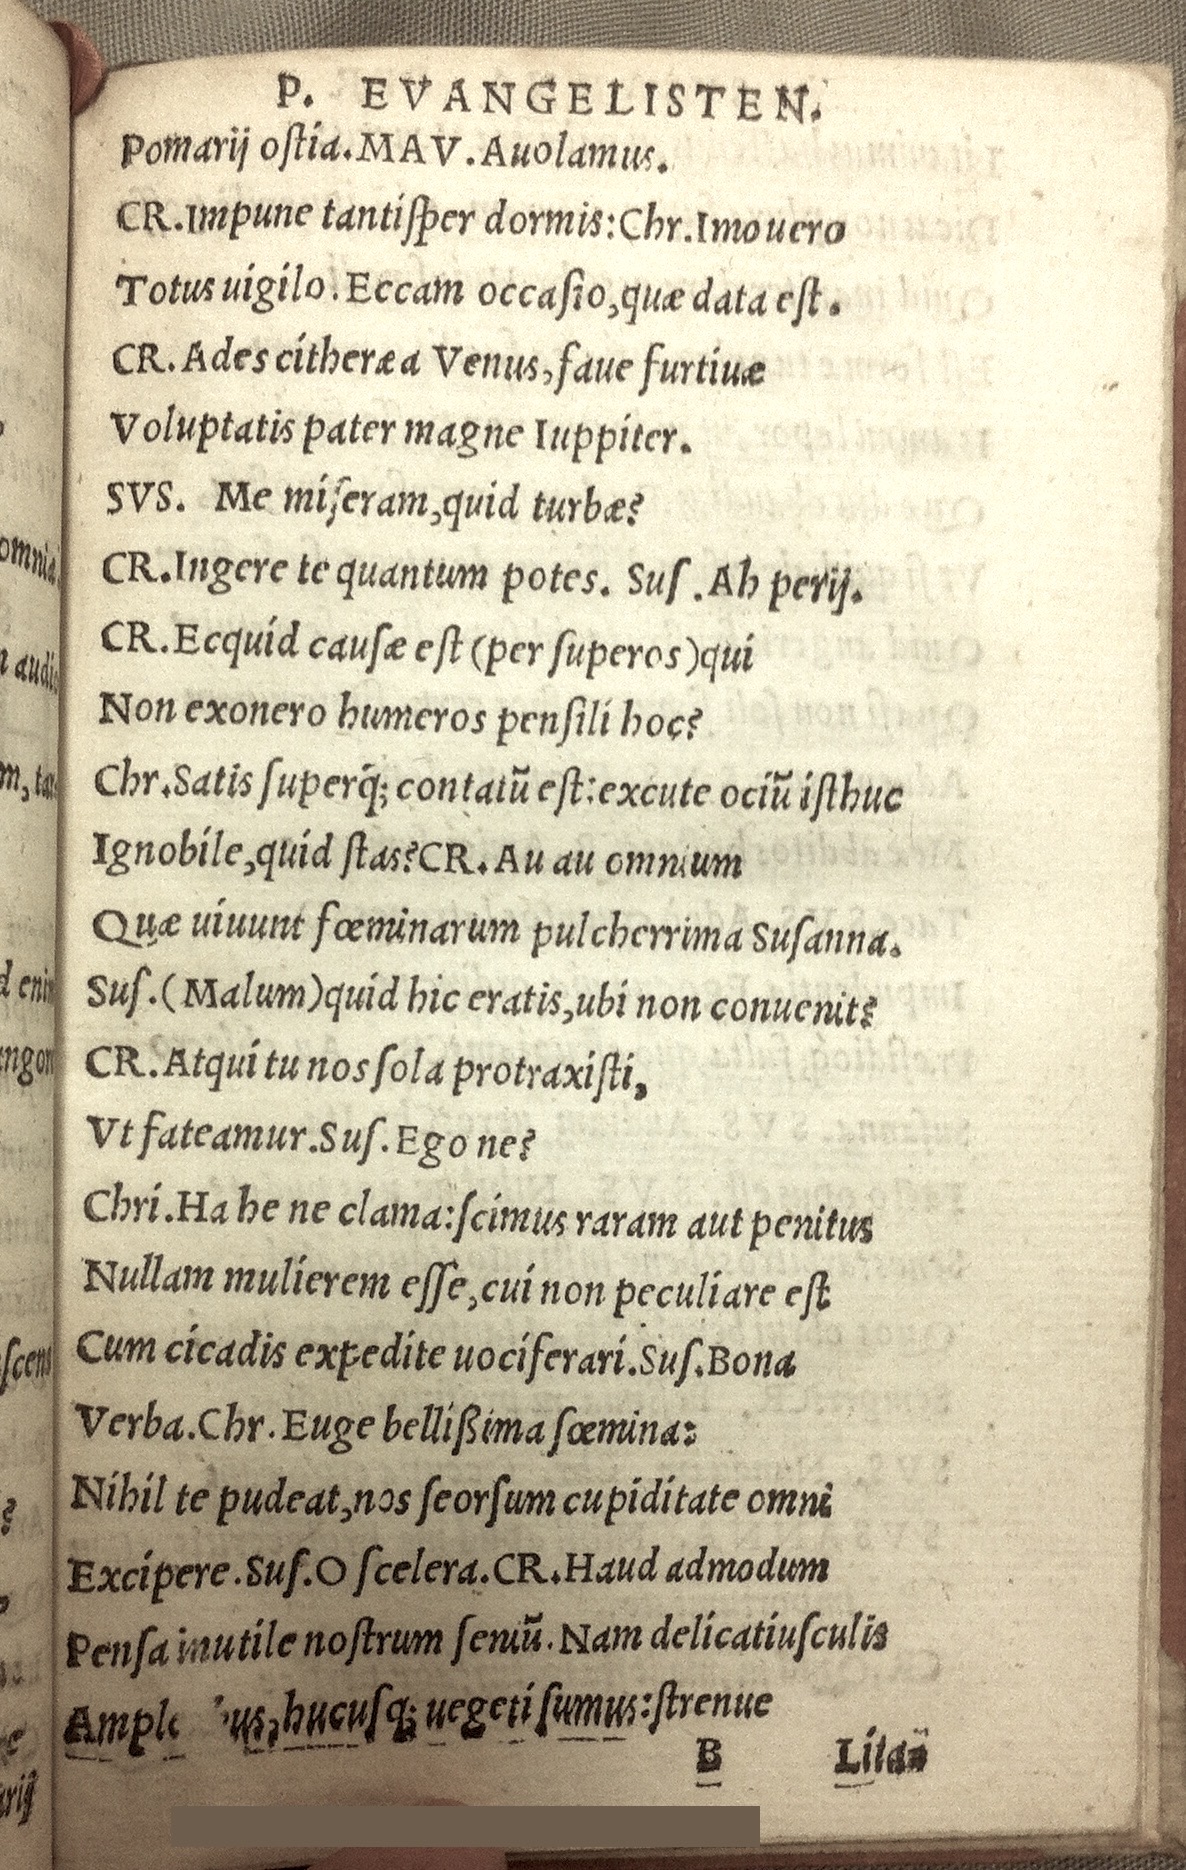 P. EVANGELISTEN.
Pomarij ostia. MAV. Auolamus.
CR. Impune tantisper dormis: Chr. Imo uero
Totus uigilo. Eccam occasio, quæ data est.
CR. Ades citheræa Venus, faue furtiuæ
Voluptatis pater magne Iuppiter.
SVS. Me miseram, quid turbæ?
CR. Ingere te quantum potes. Sus. Ah perij.
CR. Ecquid causæ est (per superos) qui
Non exonero humeros pensili hoc?
Chr. Satis superq; contatũ est: excute ociũ isthuc
Ignobile, quid stas? CR. Au au omnium
Quæ uiuunt fœminarum pulcherrima Susanna.
Sus. (Malum) quid hic eratis, ubi non conuenit?
CR. Atqui tu nos sola protraxisti,
Vt fateamur. Sus. Ego ne?
Chri. Ha he ne clama: scimus raram aut penitus
Nullam mulierem esse, cui non peculiare est
Cum cicadis expedite uociferari. Sus. Bona
Verba. Chr. Euge bellißima fœmina:
Nihil te pudeat, nos seorsum cupiditate omni
Excipere. Sus. O scelera. CR. Haud admodum
Pensa inutile nostrum seniũ. Nam delicatiusculis
hucusq; uegeti sumus: strenue
B
omnia
audi
m, tan
d enim
scens
arij